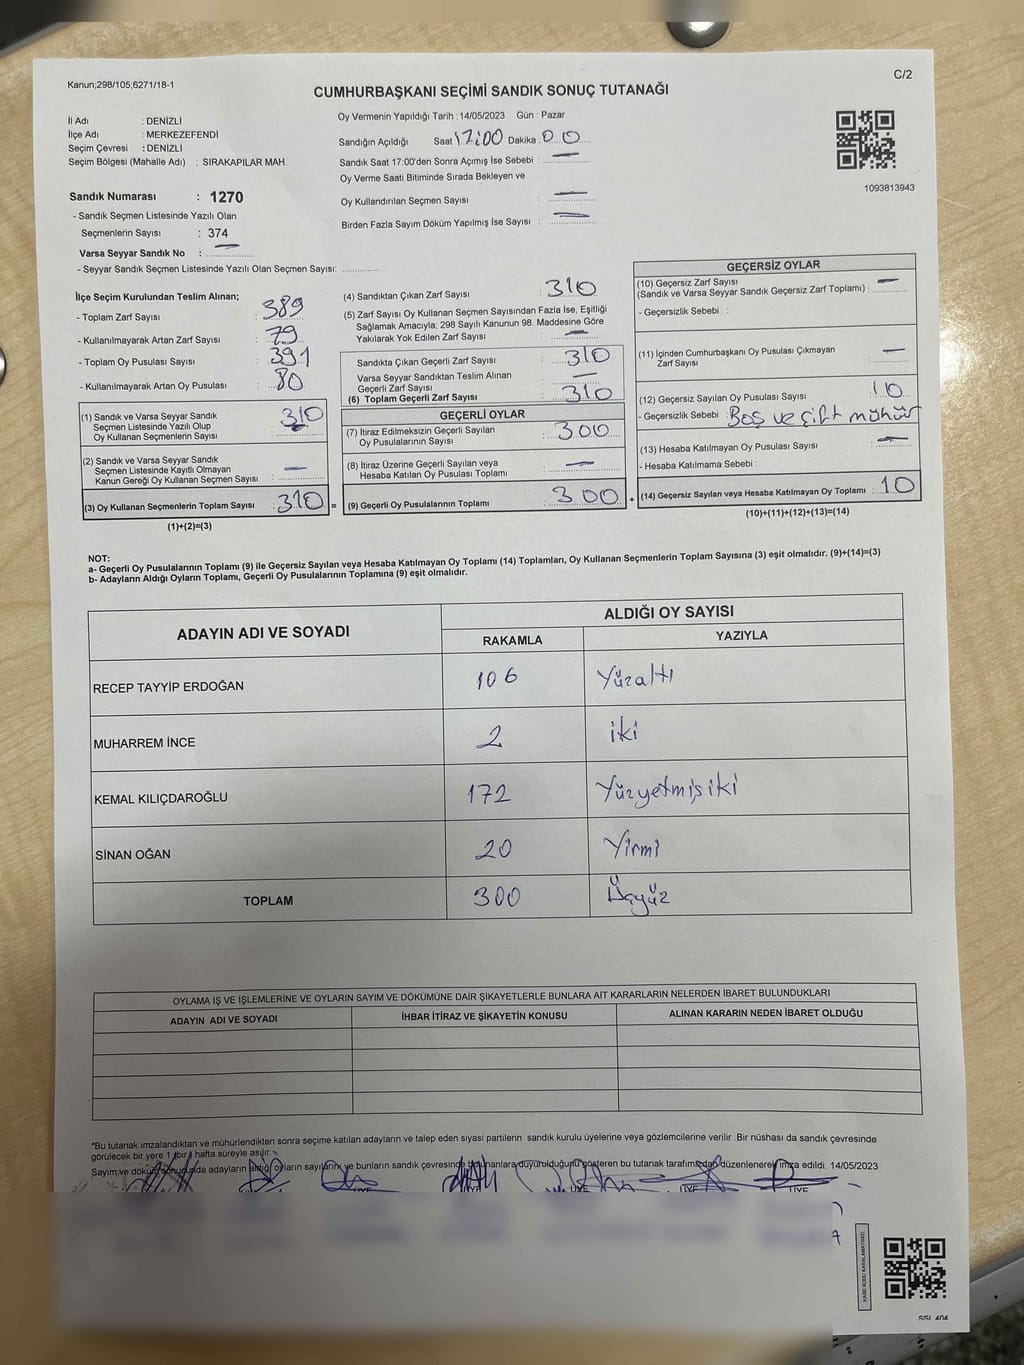 Kanun;298/105;6271/18-1
C/2
CUMHURBAŞKANI SEÇİMİ SANDIK SONUÇ TUTANAĞI
İl Adı : DENİZLİ
İlçe Adı : MERKEZEFENDİ
Seçim Çevresi : DENİZLİ
Seçim Bölgesi (Mahalle Adı) : SIRAKAPILAR MAH.
Sandık Numarası : 1270
- Sandık Seçmen Listesinde Yazılı Olan
Seçmenlerin Sayısı : 374
Varsa Seyyar Sandık No : —
- Seyyar Sandık Seçmen Listesinde Yazılı Olan Seçmen Sayısı:
Oy Vermenin Yapıldığı Tarih : 14/05/2023 Gün : Pazar
Sandığın Açıldığı Saat 17:00 Dakika : 00
Sandık Saat 17:00'den Sonra Açımış İse Sebebi : —
Oy Verme Saati Bitiminde Sırada Bekleyen ve
Oy Kullandırılan Seçmen Sayısı : —
Birden Fazla Sayım Döküm Yapılmış İse Sayısı : —
1093813943
İlçe Seçim Kurulundan Teslim Alınan;
- Toplam Zarf Sayısı : 389
- Kullanılmayarak Artan Zarf Sayısı : 79
- Toplam Oy Pusulası Sayısı : 391
- Kullanılmayarak Artan Oy Pusulası : 80
(1) Sandık ve Varsa Seyyar Sandık
Seçmen Listesinde Yazılı Olup
Oy Kullanan Seçmenlerin Sayısı : 310
(2) Sandık ve Varsa Seyyar Sandık
Seçmen Listesinde Kayıtlı Olmayan
Kanun Gereği Oy Kullanan Seçmen Sayısı : —
(3) Oy Kullanan Seçmenlerin Toplam Sayısı : 310
(1)+(2)=(3)
(4) Sandıktan Çıkan Zarf Sayısı : 310
(5) Zarf Sayısı Oy Kullanan Seçmen Sayısından Fazla İse, Eşitliği
Sağlamak Amacıyla; 298 Sayılı Kanunun 98. Maddesine Göre
Yakılarak Yok Edilen Zarf Sayısı : —
Sandıkta Çıkan Geçerli Zarf Sayısı : 310
Varsa Seyyar Sandıktan Teslim Alınan
Geçerli Zarf Sayısı : —
(6) Toplam Geçerli Zarf Sayısı : 310
GEÇERLİ OYLAR
(7) İtiraz Edilmeksizin Geçerli Sayılan
Oy Pusulalarının Sayısı : 300
(8) İtiraz Üzerine Geçerli Sayılan veya
Hesaba Katılan Oy Pusulası Toplamı : —
= (9) Geçerli Oy Pusulalarının Toplamı : 300 +
GEÇERSİZ OYLAR
(10) Geçersiz Zarf Sayısı
(Sandık ve Varsa Seyyar Sandık Geçersiz Zarf Toplamı) : —
- Geçersizlik Sebebi :
(11) İçinden Cumhurbaşkanı Oy Pusulası Çıkmayan
Zarf Sayısı : —
(12) Geçersiz Sayılan Oy Pusulası Sayısı : 10
- Geçersizlik Sebebi : Boş ve çift mühür
(13) Hesaba Katılmayan Oy Pusulası Sayısı : —
- Hesaba Katılmama Sebebi :
(14) Geçersiz Sayılan veya Hesaba Katılmayan Oy Toplamı : 10
(10)+(11)+(12)+(13)=(14)
NOT:
a- Geçerli Oy Pusulalarının Toplamı (9) ile Geçersiz Sayılan veya Hesaba Katılmayan Oy Toplamı (14) Toplamları, Oy Kullanan Seçmenlerin Toplam Sayısına (3) eşit olmalıdır. (9)+(14)=(3)
b- Adayların Aldığı Oyların Toplamı, Geçerli Oy Pusulalarının Toplamına (9) eşit olmalıdır.
ADAYIN ADI VE SOYADI
ALDIĞI OY SAYISI
RAKAMLA YAZIYLA
RECEP TAYYİP ERDOĞAN 106 Yüzaltı
MUHARREM İNCE 2 iki
KEMAL KILIÇDAROĞLU 172 Yüzyetmişiki
SİNAN OĞAN 20 Yirmi
TOPLAM 300 Üçyüz
OYLAMA İŞ VE İŞLEMLERİNE VE OYLARIN SAYIM VE DÖKÜMÜNE DAİR ŞİKAYETLERLE BUNLARA AİT KARARLARIN NELERDEN İBARET BULUNDUKLARI
ADAYIN ADI VE SOYADI İHBAR İTİRAZ VE ŞİKAYETİN KONUSU ALINAN KARARIN NEDEN İBARET OLDUĞU
*Bu tutanak imzalandıktan ve mühürlendikten sonra seçime katılan adayların ve talep eden siyasi partilerin sandık kurulu üyelerine veya gözlemcilerine verilir. Bir nüshası da sandık çevresinde
görülecek bir yere 1 (bir) hafta süreyle asılır.
Sayım ve döküm sonucunda adayların aldığı oyların sayılarını ve bunların sandık çevresinde bulunanlara duyurulduğunu gösteren bu tutanak tarafımızdan düzenlenerek imza edildi. 14/05/2023
ÜYE ÜYE ÜYE ÜYE ÜYE
KARE KODU KARALAMAYINIZ!